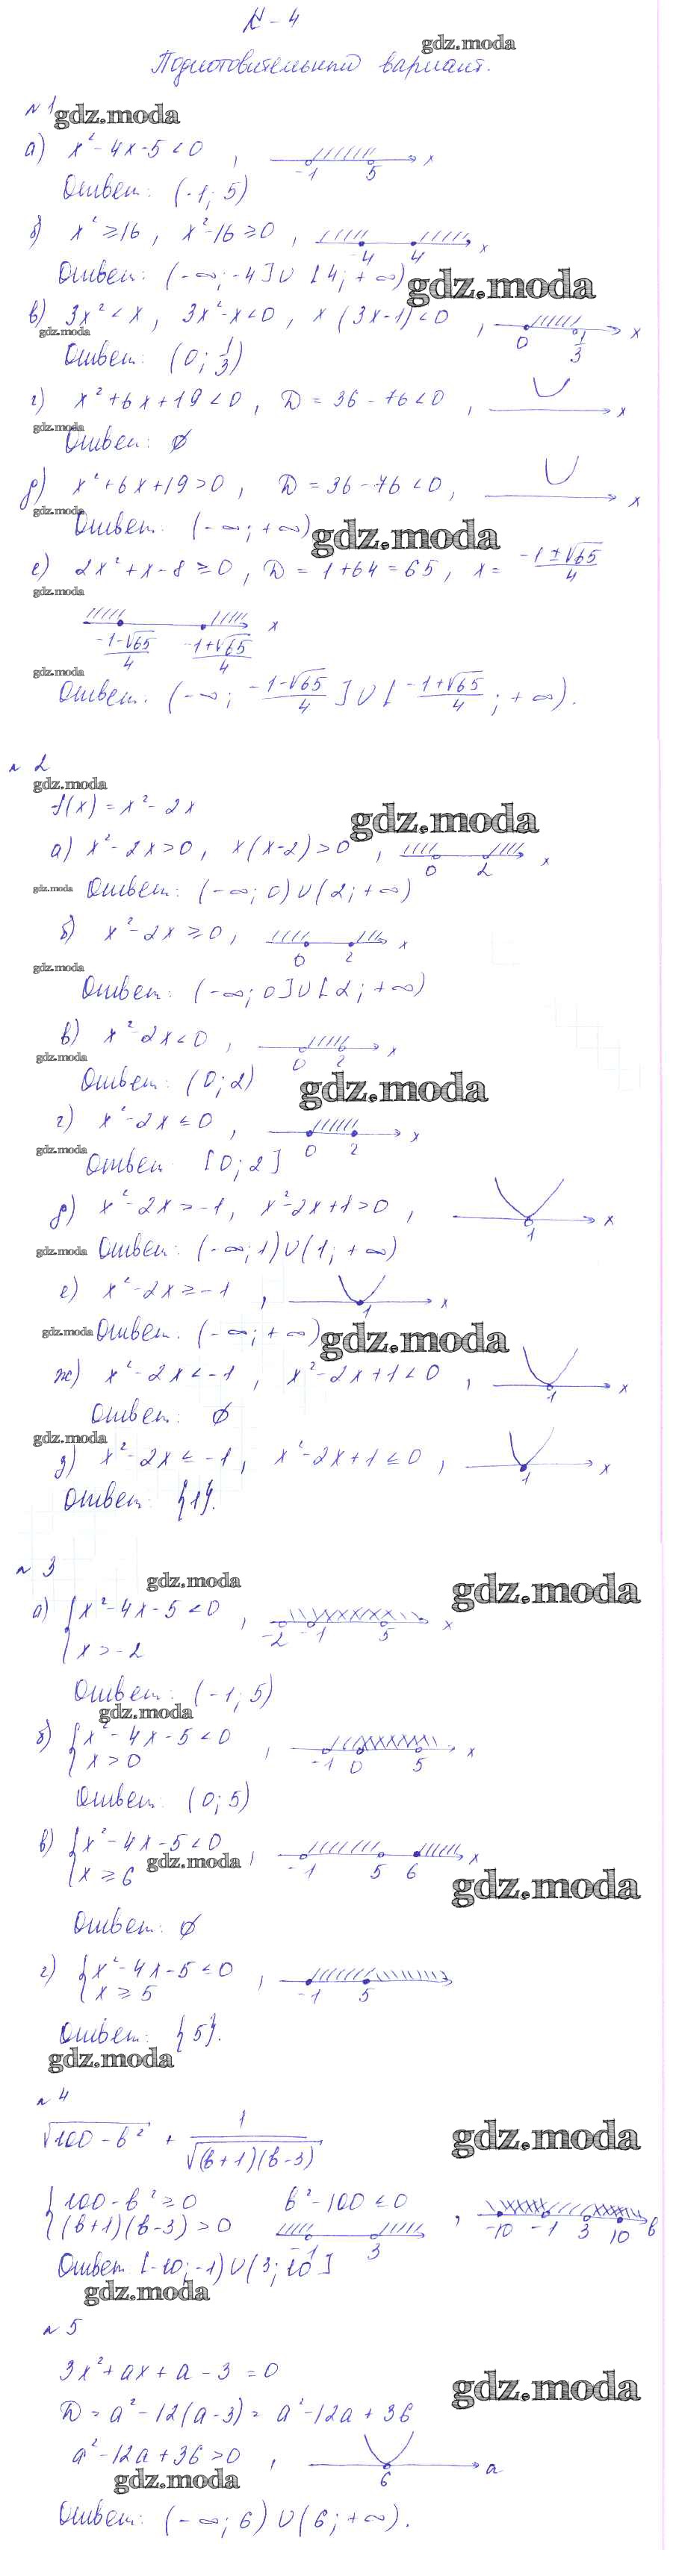 К-4
gdz.moda
Подготовительный вариант.
№1 gdz.moda
а) x²-4x-5<0, -1 5 x
Ответ: (-1; 5)
б) x²≥16, x²-16≥0, -4 4 x
Ответ: (-∞; -4]∪[4; +∞) gdz.moda
в) 3x²<x, 3x²-x<0, x(3x-1)<0, 0 1/3 x
gdz.moda
Ответ: (0; 1/3)
г) x²+6x+19<0, D=36-76<0, x
gdz.moda
Ответ: ∅
д) x²+6x+19>0, D=36-76<0, x
gdz.moda
Ответ: (-∞; +∞) gdz.moda
е) 2x²+x-8≥0, D=1+64=65, x=(-1±√65)/4
gdz.moda
(-1-√65)/4 (-1+√65)/4 x
gdz.moda
Ответ. (-∞; (-1-√65)/4]∪[(-1+√65)/4; +∞).
№2
gdz.moda
f(x)=x²-2x
gdz.moda
а) x²-2x>0, x(x-2)>0, 0 2 x
gdz.moda Ответ: (-∞; 0)∪(2; +∞)
б) x²-2x≥0, 0 2 x
gdz.moda
Ответ: (-∞; 0]∪[2; +∞)
в) x²-2x<0, 0 2 x
gdz.moda
Ответ: (0; 2) gdz.moda
г) x²-2x≤0, 0 2 x
gdz.moda
Ответ [0; 2]
д) x²-2x>-1, x²-2x+1>0, 1 x
gdz.moda Ответ: (-∞; 1)∪(1; +∞)
е) x²-2x≥-1, 1 x
gdz.moda Ответ. (-∞; +∞) gdz.moda
ж) x²-2x<-1, x²-2x+1<0, 1 x
Ответ: ∅
gdz.moda
з) x²-2x≤-1, x²-2x+1≤0, 1 x
Ответ: {1}.
№3
gdz.moda gdz.moda
а) {x²-4x-5<0, -2 -1 5 x
x>-2
Ответ: (-1; 5)
gdz.moda
б) {x²-4x-5<0, -1 0 5 x
x>0
Ответ: (0; 5)
в) {x²-4x-5<0, -1 5 6 x
x≥6 gdz.moda
gdz.moda
Ответ: ∅
г) {x²-4x-5≤0, -1 5
x≥5
Ответ: {5}.
gdz.moda
№4
√(100-b²) + 1/√((b+1)(b-3))
gdz.moda
{100-b²≥0 b²-100≤0, -10 -1 3 10 b
(b+1)(b-3)>0 -1 3
Ответ [-10; -1)∪(3; 10]
gdz.moda
№5
3x²+ax+a-3=0
gdz.moda
D=a²-12(a-3)=a²-12a+36
a²-12a+36>0, 6 a
gdz.moda
Ответ: (-∞; 6)∪(6; +∞).